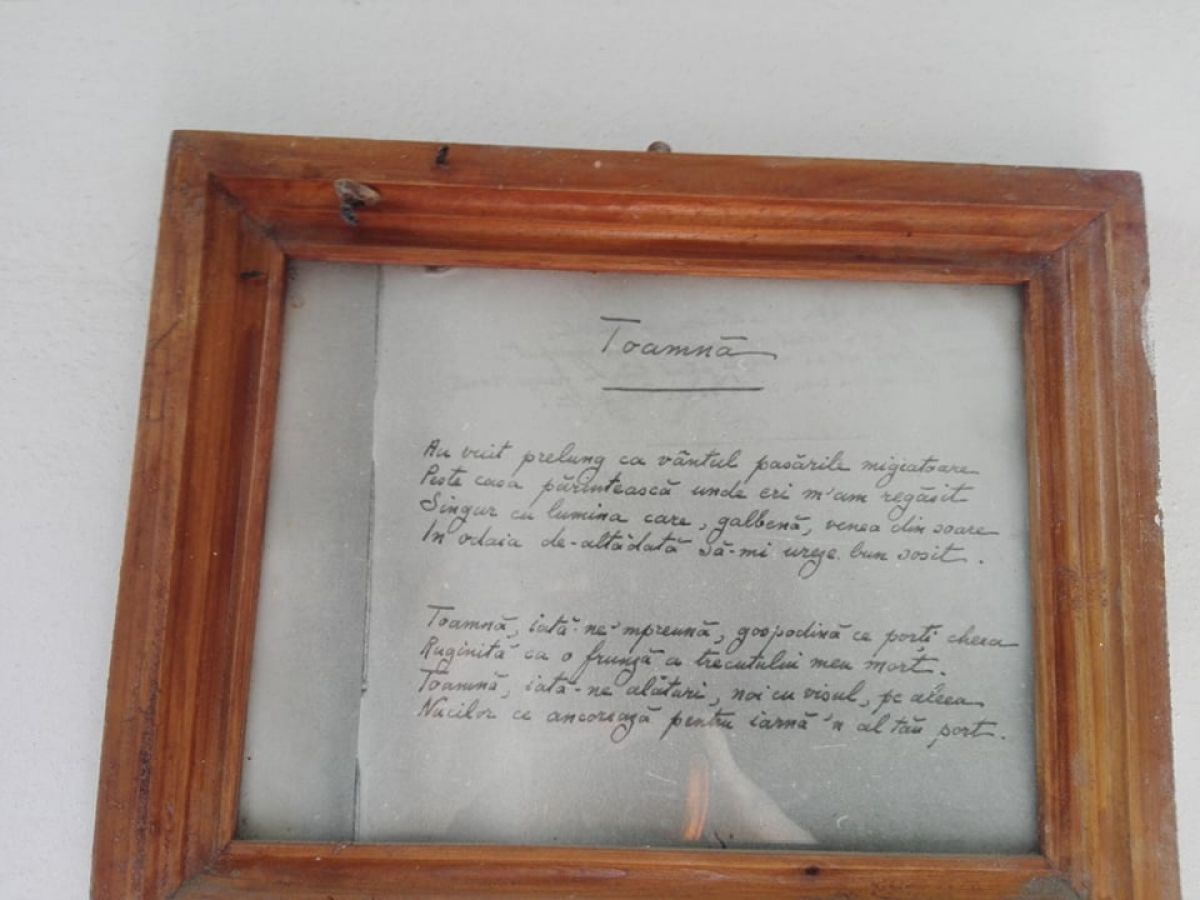 Toamnă
Au vuit prelung ca vântul pasările migratoare
Peste casa părintească unde eri m'am regăsit
Singur cu lumina care, galbenă, venea din soare
In odaia de-altădată să-mi ureze bun sosit.
Toamnă, iată-ne 'mpreună, gospodină ce porți cheea
Ruginită ca o frunză a trecutului meu mort.
Toamnă, iată-ne alături, noi cu visul, pe aleea
Nucilor ce ancorează pentru iarnă 'n al tău port.